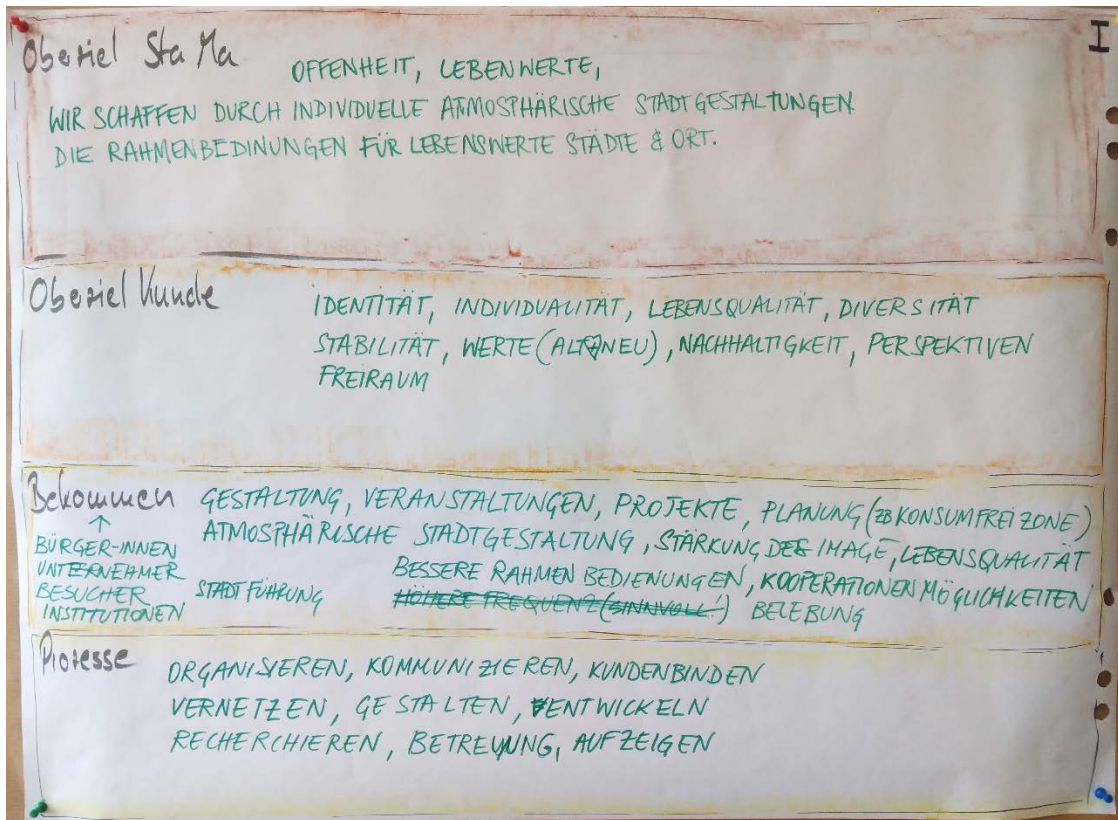 I
Oberziel Sta Ma
OFFENHEIT, LEBENWERTE,
WIR SCHAFFEN DURCH INDIVIDUELLE ATMOSPHÄRISCHE STADTGESTALTUNGEN
DIE RAHMENBEDINUNGEN FÜR LEBENSWERTE STÄDTE & ORT.
Oberziel Kunde
IDENTITÄT, INDIVIDUALITÄT, LEBENSQUALITÄT, DIVERSITÄT
STABILITÄT, WERTE (ALT NEU), NACHHALTIGKEIT, PERSPEKTIVEN
FREIRAUM
Bekommen
↑
BÜRGER-INNEN
UNTERNEHMER
BESUCHER
INSTITUTIONEN
GESTALTUNG, VERANSTALTUNGEN, PROJEKTE, PLANUNG (ZB KONSUMFREI ZONE)
ATMOSPHÄRISCHE STADTGESTALTUNG, STÄRKUNG DES IMAGE, LEBENSQUALITÄT
BESSERE RAHMEN BEDIENUNGEN, KOOPERATIONEN MÖGLICHKEITEN
STADTFÜHRUNG HÖHERE FREQUENZ (SINNVOLL!) BELEBUNG
Prozesse
ORGANISIEREN, KOMMUNIZIEREN, KUNDENBINDEN
VERNETZEN, GESTALTEN, ENTWICKELN
RECHERCHIEREN, BETREUUNG, AUFZEIGEN